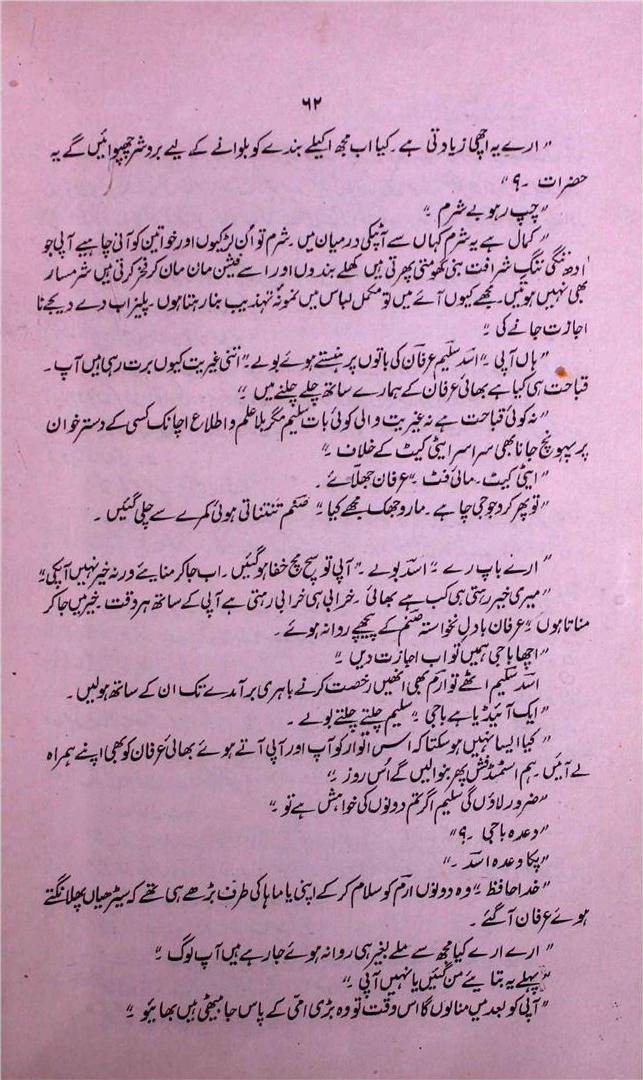 ۶۲
" ارے یہ اچھی زیادتی ہے ۔ کیا اب مجھ اکیلے بندے کو بلوانے کے لیے بروشر چھپوائیں گے یہ
حضرات ۔؟"
" چپ رہو بے شرم ۔"
" کمال ہے یہ شرم کہاں سے آٹپکی درمیان میں ۔ شرم تو اُن لڑکیوں اور خواتین کو آنی چاہیے آپی جو
ادھ ننگی ننگِ شرافت بنی گھومتی پھرتی ہیں کھلے بندوں اور اسے فیشن مان مان کر فخر کرتی ہیں شرمسار
بھی نہیں ہوتیں ۔ مجھے کیوں آئے میں تو مکمل لباس میں نمونۂ تہذیب بنا رہتا ہوں ۔ پلیز اب دے دیجے نا
اجازت جانے کی ۔"
" ہاں آپی ۔" اسد سلیم عرفان کی باتوں پر ہنستے ہوئے بولے ۔" اتنی غیریت کیوں برت رہی ہیں آپ ۔
قباحت ہی کیا ہے بھائی عرفان کے ہمارے ساتھ چلے چلنے میں ۔"
" نہ کوئی قباحت ہے نہ غیریت والی کوئی بات سلیم مگر بلا علم و اطلاع اچانک کسی کے دسترخوان
پر پہونچ جانا بھی سراسر ایٹی کیٹ کے خلاف ۔"
" ایٹی کیٹ ۔ مائی فٹ ۔" عرفان جھلّائے ۔
" تو پھر کرو جو جی چاہے ۔ مارو جھک مجھے کیا ۔" صنم تنتناتی ہوئی کمرے سے چلی گئیں ۔
" ارے باپ رے ۔" اسد بولے ۔" آپی تو سچ مچ خفا ہوگئیں ۔ اب جاکر منائیے ورنہ خیر نہیں آپکی ۔"
" میری خیر رہتی ہی کب ہے بھائی ۔ خرابی ہی خرابی رہتی ہے آپی کے ساتھ ہر وقت ۔ خیر میں جاکر
مناتا ہوں ۔" عرفان بادلِ نخواستہ صنم کے پیچھے روانہ ہوئے ۔
" اچھا باجی ہمیں تو اب اجازت دیں ۔"
اسد سلیم اٹھے تو ارم بھی انھیں رخصت کرنے باہری برآمدے تک ان کے ساتھ ہولیں ۔
" ایک آئیڈیا ہے باجی ۔" سلیم چلتے چلتے بولے ۔
" کیا ایسا نہیں ہوسکتا کہ اس اتوار کو آپ اور آپی آتے ہوئے بھائی عرفان کو بھی اپنے ہمراہ
لے آئیں ۔ ہم اسٹمڈ فِش پھر بنوالیں گے اُس روز ۔"
" ضرور لاؤں گی سلیم اگر تم دونوں کی خواہش ہے تو ۔"
" وعدہ باجی ۔؟"
" پکا وعدہ اسد ۔"
" خدا حافظ ۔" وہ دونوں ارم کو سلام کرکے اپنی یاماہا کی طرف بڑھے ہی تھے کہ سیڑھیاں پھلانگتے
ہوئے عرفان آگئے ۔
" ارے ارے کیا مجھ سے ملے بغیر ہی روانہ ہوئے جارہے ہیں آپ لوگ ۔"
" پہلے یہ بتائیے من گئیں یا نہیں آپی ۔"
" آپی کو بعد میں منالوں گا اس وقت تو وہ بڑی امی کے پاس جا بیٹھی ہیں بھائیو ۔"